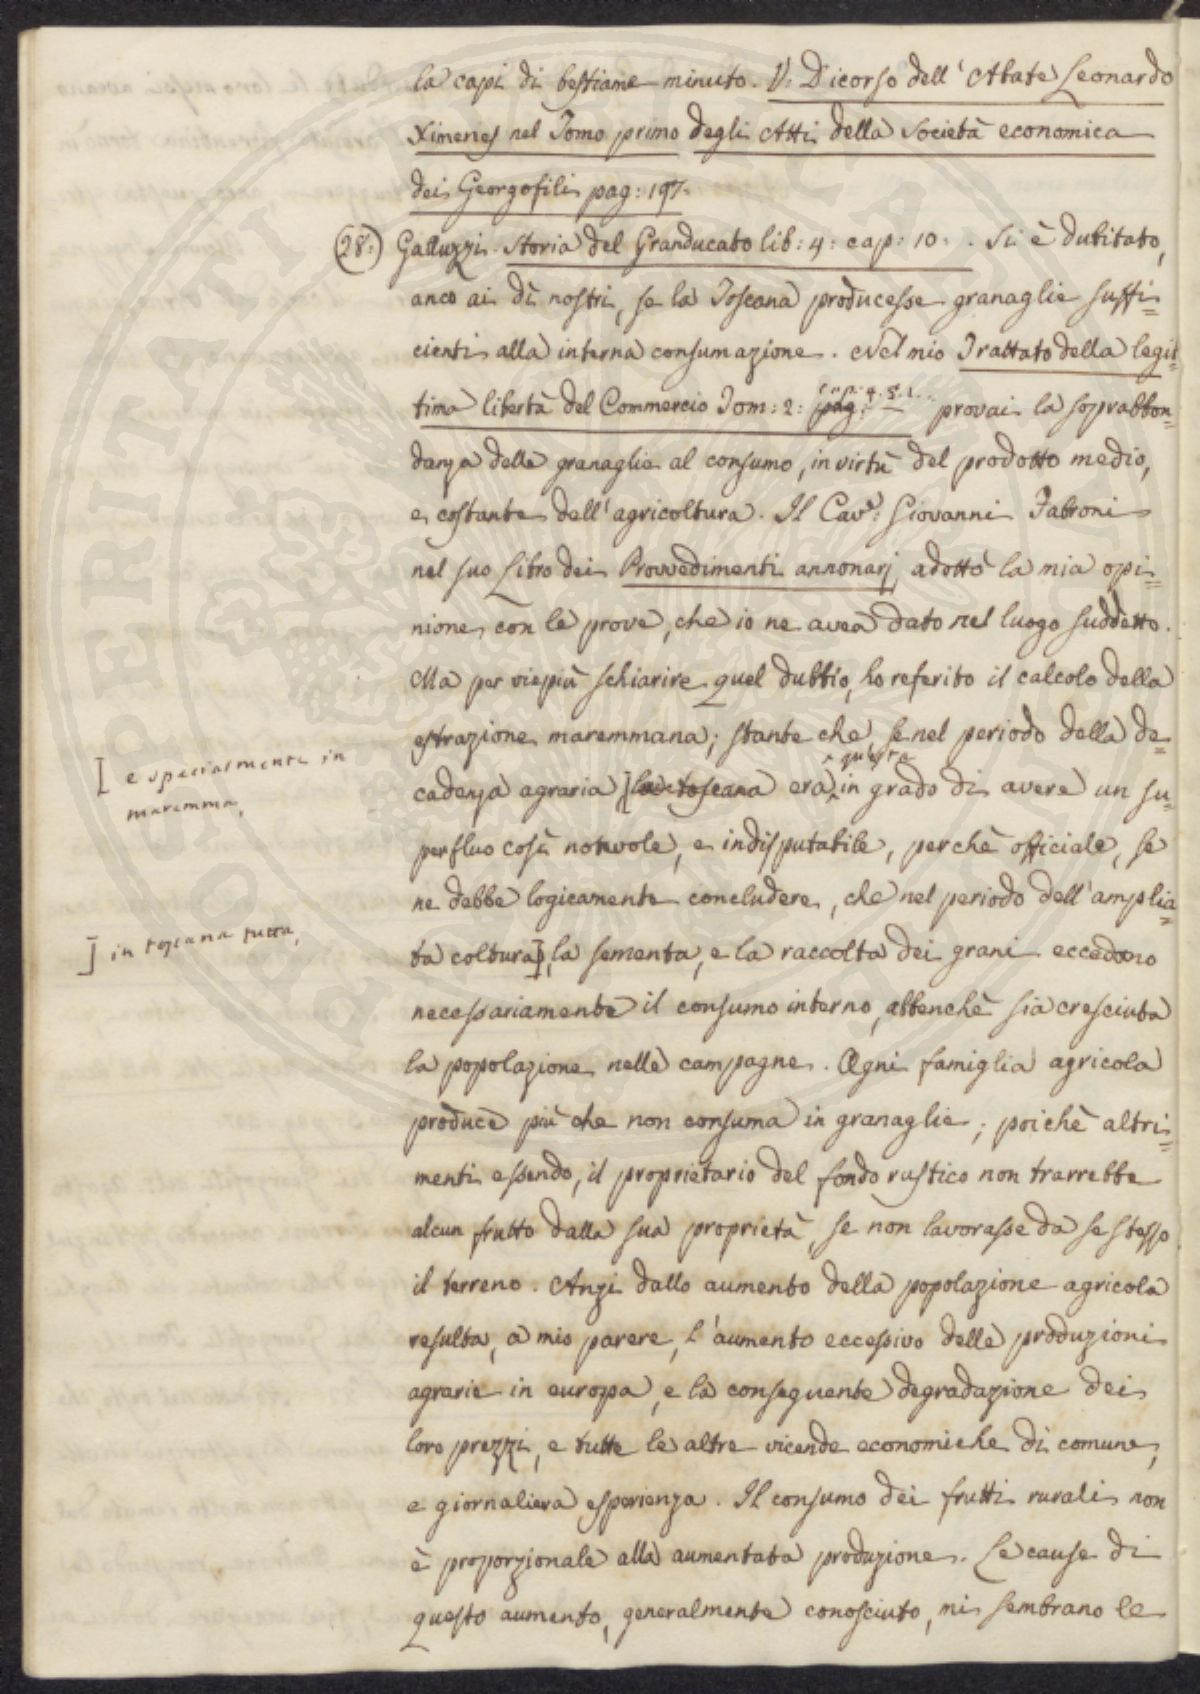 la capi di bestiame minuto. V: Dicorso dell'Abate Leonardo
Ximenes nel Tomo primo degli Atti della Società economica
dei Georgofili pag: 197.
(28:) Galluzzi. Storia del Granducato lib: 4: cap: 10: . Si è dubitato,
anco ai dì nostri, se la Toscana producesse granaglie suffi=
cienti alla interna consumazione. Nel mio Trattato della legit=
cap. 4. §. 1.
tima libertà del Commercio Tom: 2: pag: provai la soprabbon=
danza delle granaglie al consumo, in virtù del prodotto medio,
e costante dell'agricoltura. Il Cav.e: Giovanni Fabroni
nel suo Libro dei Provvedimenti annonarj, adottò la mia opi=
nione, con le prove, che io ne avea dato nel luogo suddetto.
Ma per viepiù schiarire quel dubbio, ho referito il calcolo della
estrazione maremmana; stante che se nel periodo della de=
[ e specialmente in
maremma,
questa
cadenza agraria [la toscana era in grado di avere un su=
perfluo così notevole, e indisputabile, perchè officiale, se
ne debbe logicamente concludere, che nel periodo dell'amplia=
] in toscana tutta,
ta coltura], la sementa, e la raccolta dei grani eccedono
necessariamente il consumo interno, abbenchè sia cresciuta
la popolazione nelle campagne. Ogni famiglia agricola
produce più che non consuma in granaglie; poichè altri=
menti essendo, il proprietario del fondo rustico non trarrebbe
alcun frutto dalla sua proprietà, se non lavorasse da se stesso
il terreno. Anzi dallo aumento della popolazione agricola
resulta, a mio parere, l'aumento eccessivo delle produzioni
agrarie in europa, e la conseguente degradazione dei
loro prezzi, e tutte le altre vicende economiche di comune,
e giornaliera esperienza. Il consumo dei frutti rurali non
è proporzionale alla aumentata produzione. Le cause di
questo aumento, generalmente conosciuto, mi sembrano le